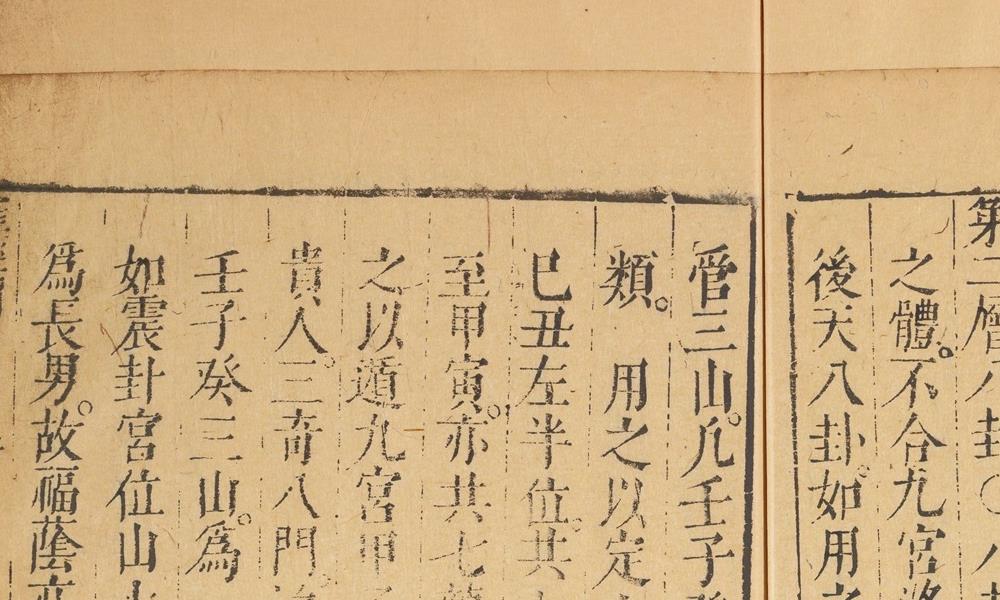 第二層八卦〇八卦
之體。不合九宮將
後天八卦。如用
管三山。凡壬子癸
類。　用之以定
巳丑左半位。共
至甲寅。亦共七
之以遁九宮甲子
貴人。三奇八門。
壬子癸三山。為
如震卦宮位山
為長男。故福蔭